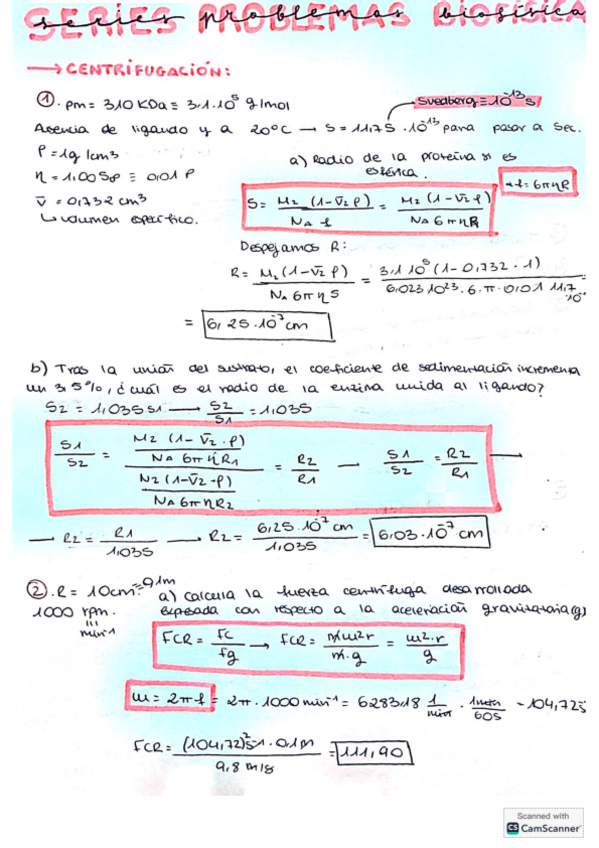 SERIES PROBLEMAS BIOFÍSICA
series problemas biofísica
→ CENTRIFUGACIÓN:
① . Pm = 310 KDa ≡ 3,1·10⁵ g/mol
Svedberg ≡ 10⁻¹³ s
Ausencia de ligando y a 20ºC → S = 11,7 S · 10⁻¹³ para pasar a seg.
ρ = 1g/cm³
a) Radio de la proteína si es esférica.
η = 1,00 Sp ≡ 0,01 P
* f = 6πηR
v̄ = 0,732 cm³
↳ volumen específico.
S = M₂ (1 - v̄₂ρ) / NA f = M₂ (1 - v̄₂ρ) / NA 6πηR
Despejamos R:
R = M₂ (1 - v̄₂ρ) / NA 6πηS = 3,1 10⁵ (1 - 0,732 · 1) / 6,023 10²³ · 6 · π · 0,01 11,7 10
= 6,25·10⁻⁷ cm
b) Tras la unión del sustrato, el coeficiente de sedimentación incrementa
un 3,5%, ¿cuál es el radio de la enzima unida al ligando?
S2 = 1,035 S1 → S2/S1 = 1,035
S1/S2 = (M2 (1 - v̄2·ρ) / NA 6πηR1) / (M2 (1 - v̄2·ρ) / NA 6πηR2) = R2/R1 — S1/S2 = R2/R1 →
→ R2 = R1/1,035 → R2 = 6,25·10⁻⁷ cm / 1,035 = 6,03·10⁻⁷ cm
② . R = 10cm = 0,1m a) Calcula la fuerza centrífuga desarrollada
1000 rpm. expresada con respecto a la aceleración gravitatoria (g)
min⁻¹
FCR = Fc/Fg → FCR = m ω² r / m·g = ω²·r / g
ω = 2πf = 2π·1000 min⁻¹ = 6283,18 1/min · 1min/60s = 104,72 s
FCR = (104,72)² s⁻¹ · 0,1m / 9,8 m/s = 111,90
Scanned with
CS CamScanner